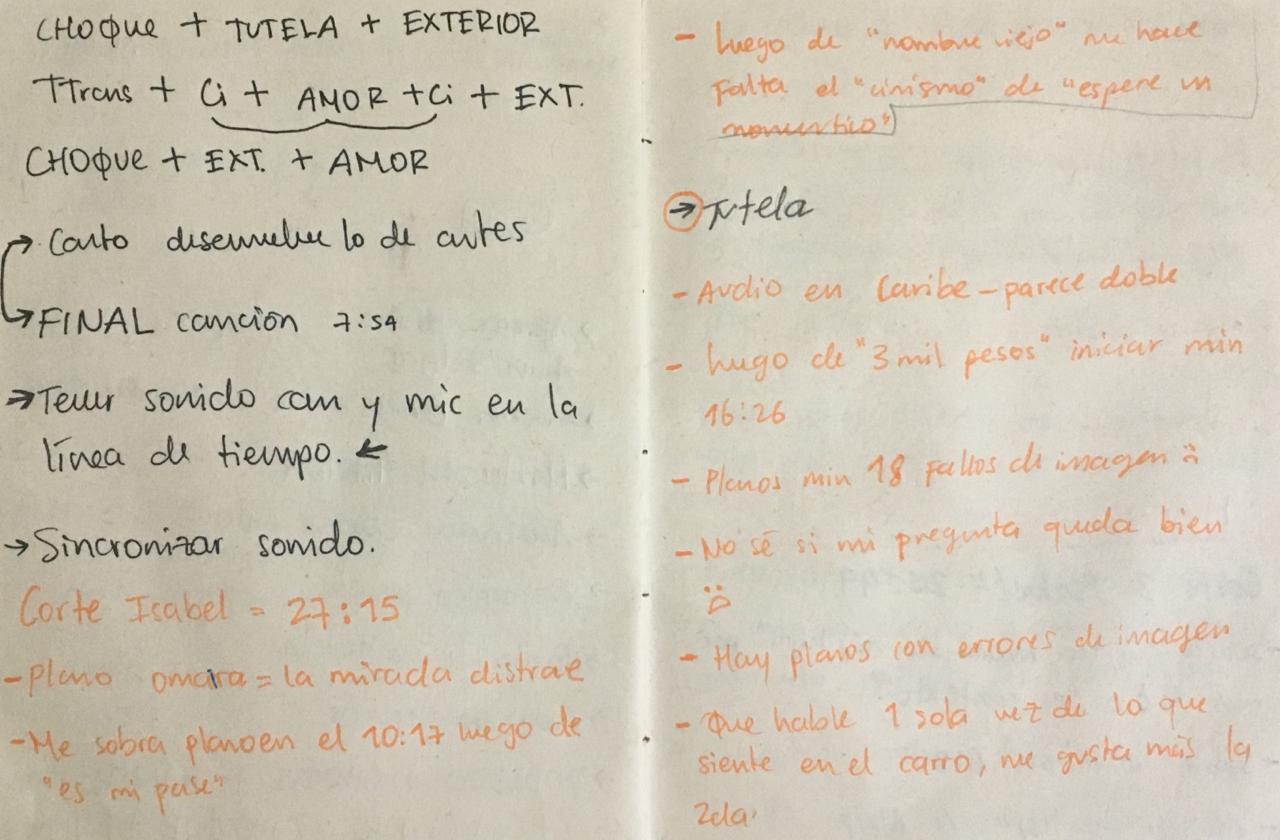 CHOQUE + TUTELA + EXTERIOR
TTrans + Ci + AMOR + Ci + EXT.
CHOQUE + EXT. + AMOR
→ Corto desenvuelve lo de antes
→ FINAL canción 7:54
→ Tener sonido cam y mic en la
línea de tiempo. ←
→ Sincronizar sonido.
Corte Isabel = 27:15
- Plano omara = la mirada distrae
- Me sobra plano en el 10:17 luego de
"es mi pase"
- luego de "nombre viejo" me hace
Falta el "cinismo" de "espere un
momentico"
→ Tutela
- Audio en Caribe - parece doble
- luego de "3 mil pesos" iniciar min
16:26
- Planos min 18 fallos de imagen
- No sé si mi pregunta queda bien
- Hay planos con errores de imagen
- Que hable 1 sola vez de lo que
siente en el carro, me gusta más la
2da.